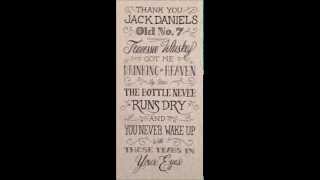 THANK YOU
JACK DANIELS
Old No. 7
Tennessee Whiskey
GOT ME
DRINKING in HEAVEN
THE BOTTLE NEVER
RUNS DRY
AND
YOU NEVER WAKE UP
with
THOSE TEARS IN
Your Eyes